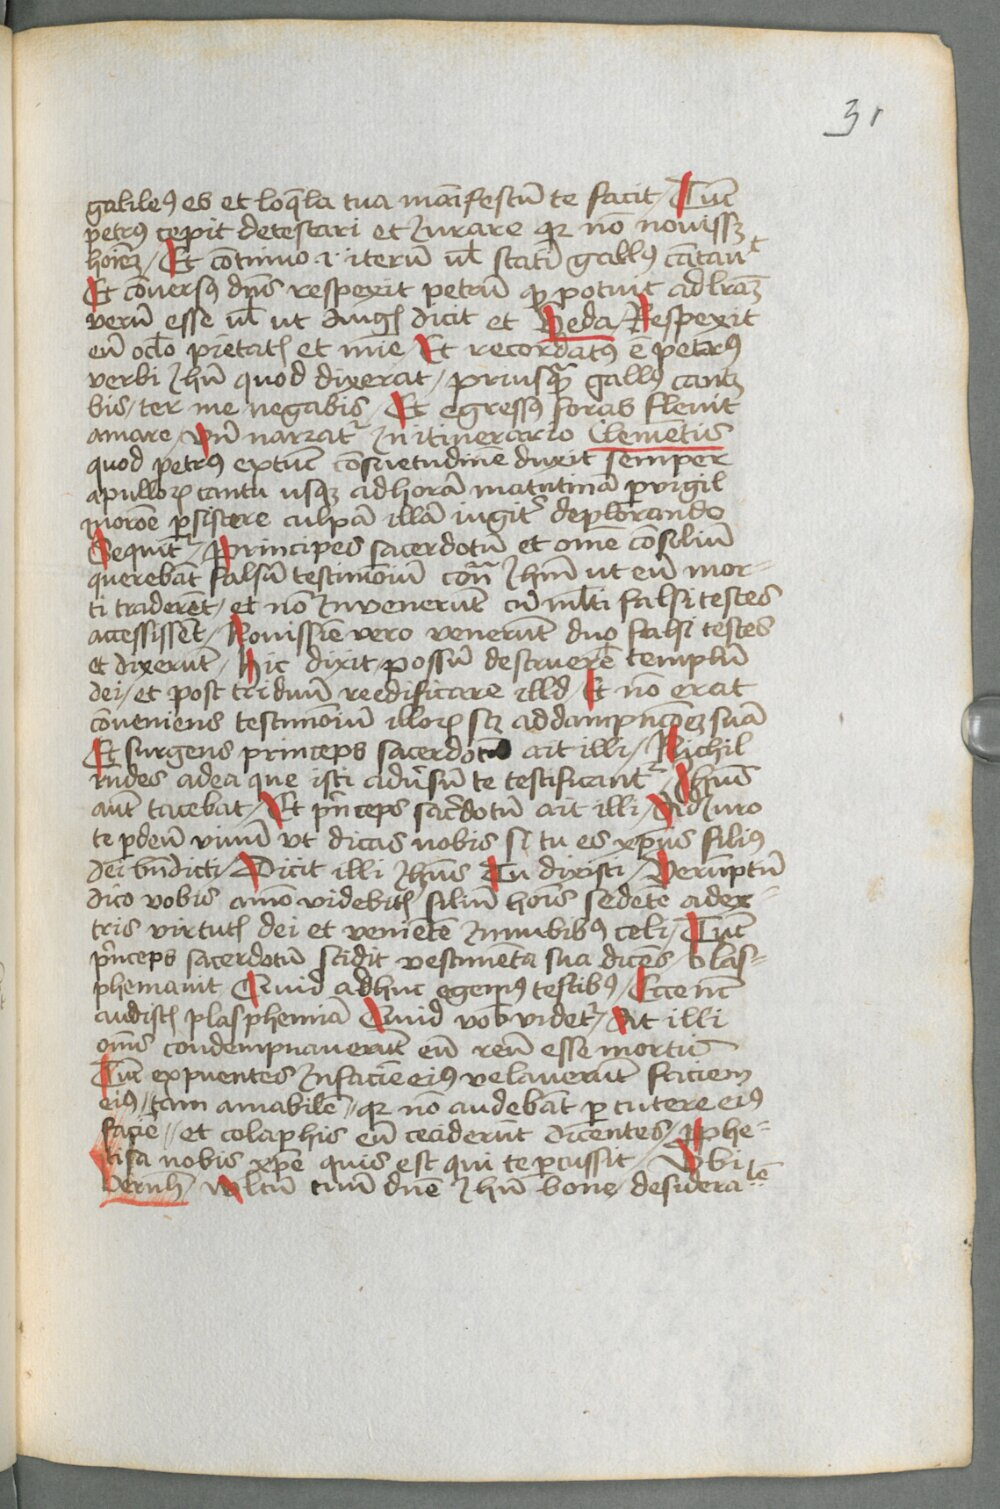 31
galile9 es et loq̄la tua manifestū te facit / Tūc
petr9 cepit detestari et Iurare qr nō nouissʒ
hoiēʒ / Et cōtinuo i iterū vl̄ statī gall9 cātauᵗ
Et cōvers9 dn̄s respexit petrū qp potuit ad lr̄aʒ
verū esse vl̄ ut Aug9 dicit et Beda / Respexit
eū oc̄lo pietat9 et mīe Et recordat9 ē petr9
verbi Ihū quod dixerat / priusq̄ gall9 cantʒ
bis / ter me negabis / Et egress9 foras flevit
amare / vn̄ narratʳ In itinerario Clemētis
quod petr9 extūc cōsuetudinē duxit semper
a pullorꝝ cantu usqʒ ad horā matutinā pvigil
moroē psistere culpā illā iugitʳ deplorando
Sequitʳ / Principes sacerdotū et omē cōsiliū
querebāt falsū testimoiū cōtʳ Ihm̄ ut eū mor-
ti traderēt / et nō Invenerūt cū ml̄ti falsi testes
accessissēt / Novissīe vero venerūt duo falsi testes
et dixerūt / hic dixit / possū destruere templū
dei / et post triduū reedificare illd Et nō erat
cōveniens testimoiū illorꝝ scʒ ad dampn̄coēʒ suā
Et surgens princeps sacerdotū ait illi / Nichil
rn̄des ad ea que isti adūsū te testificantʳ / Ihūs
aūt tacebat / Et pn̄ceps sac̄dotū ait illi / Adiuro
te p deū vivū vt dicas nobis si tu es xp̄us fili9
dei bn̄dicti / Dicit illi Ihūs Tu dixisti / Verūptū
dico vobis amō videbit9 filiū hoīs sedetē a dex-
tris virtut9 dei et venietē In nubib9 celi / Tūc
pn̄ceps sacerdotū scidit vestimēta sua dicēs / blas-
phemavit Quid adhuc egem9 testib9 / Ecce nūc
audist9 plasphemiā Quid vob videtʳ / At illi
om̄s condempnaverūt eū reū esse mortis
Tūc expuentes In faciē ei9 velaverūt faciem
ei9 / tam amabilē / qr nō audebāt pcutere ei9
faciē / et colaphis eū ceciderūt dicentes / Pphe-
tisa nobis xp̄e quis est qui te pcussit / Vbi
Bernh9 / Vultū tuū dn̄e Ihū bone / desideratē